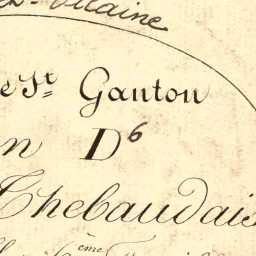 Vilaine
e St Ganton
n D6
Thebaudais
ème